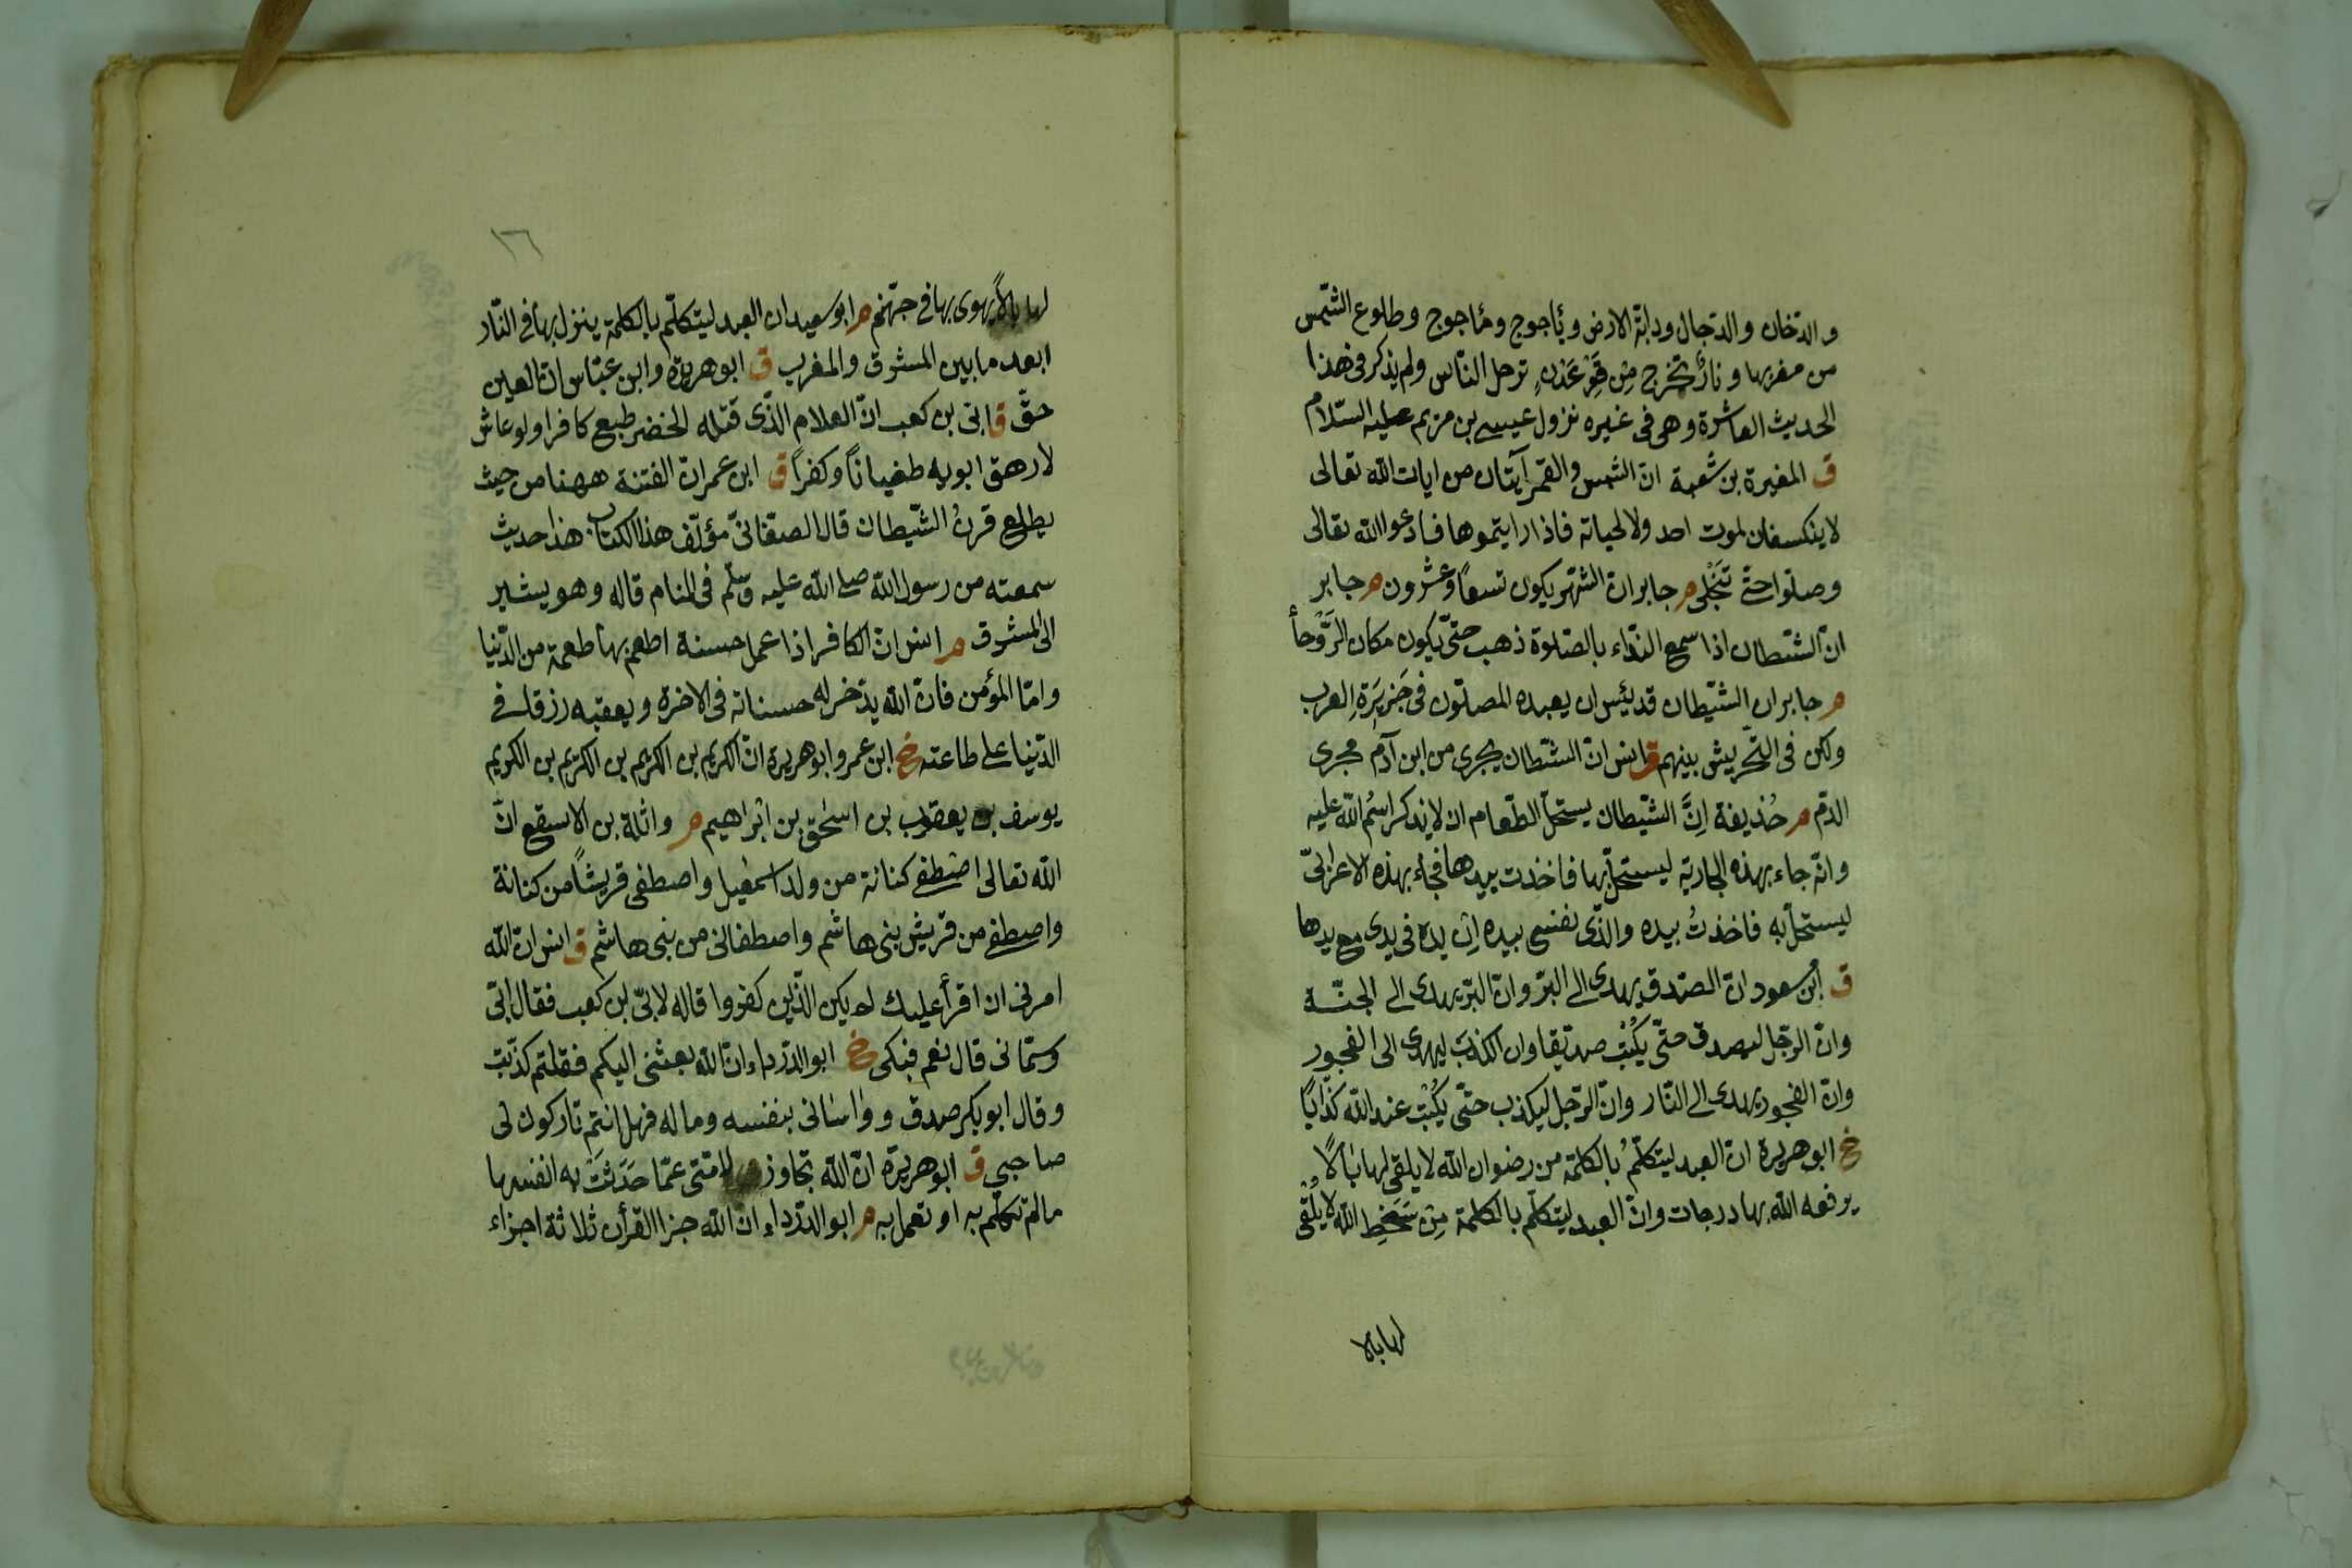 والدّخان والدّجال ودابّة الارض ويأجوج ومأجوج وطلوع الشّمس
من مغربها ونارٌ تخرج مِن قَعْرِ عَدَنٍ ترحل النّاس ولم يذكر فى هذا
الحديث العاشرة وهى فى غيره نزول عيسى بن مريم عليه السّلام
ق المغيرة بن شعبة انّ الشمس والقمر آيتان من ايات الله تعالى
لا ينكسفان لموت احد ولا لحياته فاذا رايتموها فادعوا الله تعالى
وصلّوا حتّى تَنْجَلى م جابر انّ الشهر يكون تسعًا وعشرون م جابر
انّ الشّيطان اذا سمع النّداء بالصّلوة ذهب حتّى يكون مكان الرَّوْحأ
م جابر ان الشّيطان قد يئس ان يعبده المصلّون فى جَزيرَةِ العرب
ولكن فى التّحريش بينهم ق انس انّ الشّيطان يجرى من ابن آدم مجرى
الدّم م حُذيفة اِنَّ الشّيطان يستحلّ الطّعام ان لا يذكر اسْمُ الله عليه
وانّه جاء بهذه الجارية ليستحلّ بها فاخذت بيدها فجاء بهذه الاعرابىّ
ليستحلّ به فاخذتُ بيده والّذى نفسى بيده اِنّ يده فى يدى مع يدها
ق ابن مسعود انّ الصّدق يهدى الى البرّ وانّ البرّ يهدى الى الجنّة
وانّ الرّجل ليصدق حتّى يُكْتب صدّيقا وان الكذبَ ليهدى الى الفجور
وانّ الفجور يهدى الى النّار وانّ الرّجل ليكذب حتّى يُكْتب عند الله كذّابًا
خ ابو هريرة انّ العبد ليتكلّمُ بالكلمة من رضوان الله لا يلقى لها بالًا
يرفعه الله بها درجات وانّ العبد ليتكلّم بالكلمة مِن سَخَطِ الله لا يُلْقى
لها بالا
١٦
لها بالاً يهوى بها فى جهنّم م ابو سعيد ان العبد ليتكلّم بالكلمة ينزل بها فى النّار
ابعد ما بين المشرق والمغرب ق ابو هريرة وابن عبّاس انّ العين
حقّ ق ابى بن كعب انّ الغلام الّذى قتله الخضر طبع كافرا ولو عاش
لارهق ابويه طغياناً وكفراً ق ابن عمر انّ الفتنة ههنا من حيث
يطلع قرنُ الشّيطان قال الصّغانىّ مؤلّف هذا الكتاب هذا حديث
سمعته من رسول الله صلى الله عليه وسلّم فى المنام قاله وهو يشير
الى المشرق م انس انّ الكافر اذا عمل حسنة اطعم بها طعمة من الدّنيا
وامّا المؤمن فانّ الله يدّخر له حسناته فى الاخرة ويعقبه رزقا فى
الدّنيا على طاعته خ ابن عمر وابو هريرة انّ الكريم بن الكريم بن الكريم بن الكريم
يوسف بن يعقوب بن اسحق بن ابراهيم م واثلة بن الاسقع انّ
الله تعالى اصطفى كنانة من ولد اسمعيل واصطفى قريشًا من كنانة
واصطفى من قريش بنى هاشم واصطفانى من بنى هاشم ق انس انّ الله
امرنى ان اقرأ عليك لم يكن الّذين كفروا قاله لابىّ بن كعب فقال ابىّ
وسمّانى قال نعم فبكى خ ابو الدّرداء انّ الله بعثنى اليكم فقلتم كذّبت
وقال ابو بكر صدق وواسانى بنفسه وماله فهل انتم تاركون لى
صاحبى ق ابو هريرة انّ الله تجاوز لامّتى عمّا حَدّثَتْ به انفسها
ما لم تكلّم به او تعمل به م ابو الدّرداء انّ الله جزا القرأن ثلاثة اجزاء